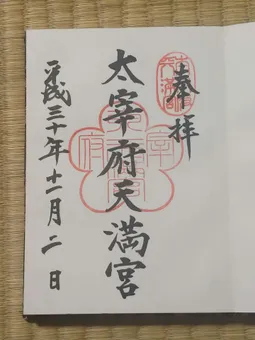 奉拝
太宰府天満宮
平成三十年十一月二日
宰
府